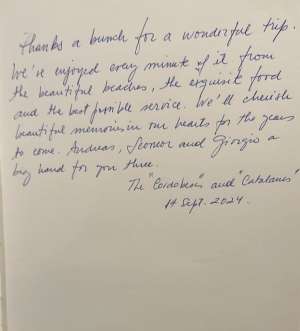 Thanks a bunch for a wonderful trip.
We've enjoyed every minute of it from
the beautiful beaches, the exquisite food
and the best possible service. We'll cherish
beautiful memories in our hearts for the years
to come. Andreas, Leonor and Giorgio a
big hand for you three.
The "Cordobesis" and "Catalanes"
14 Sept. 2024.